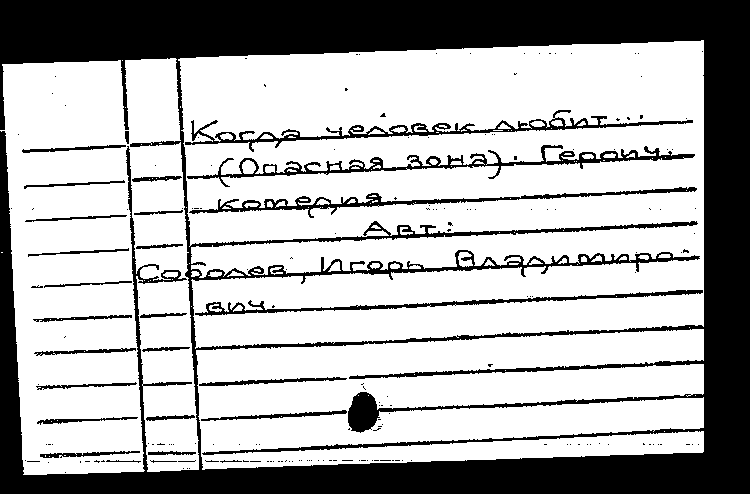 Когда человек любит...
(Опасная зона). Героич.
комедия.
Авт.:
Соболев, Игорь Владимиро-
вич.